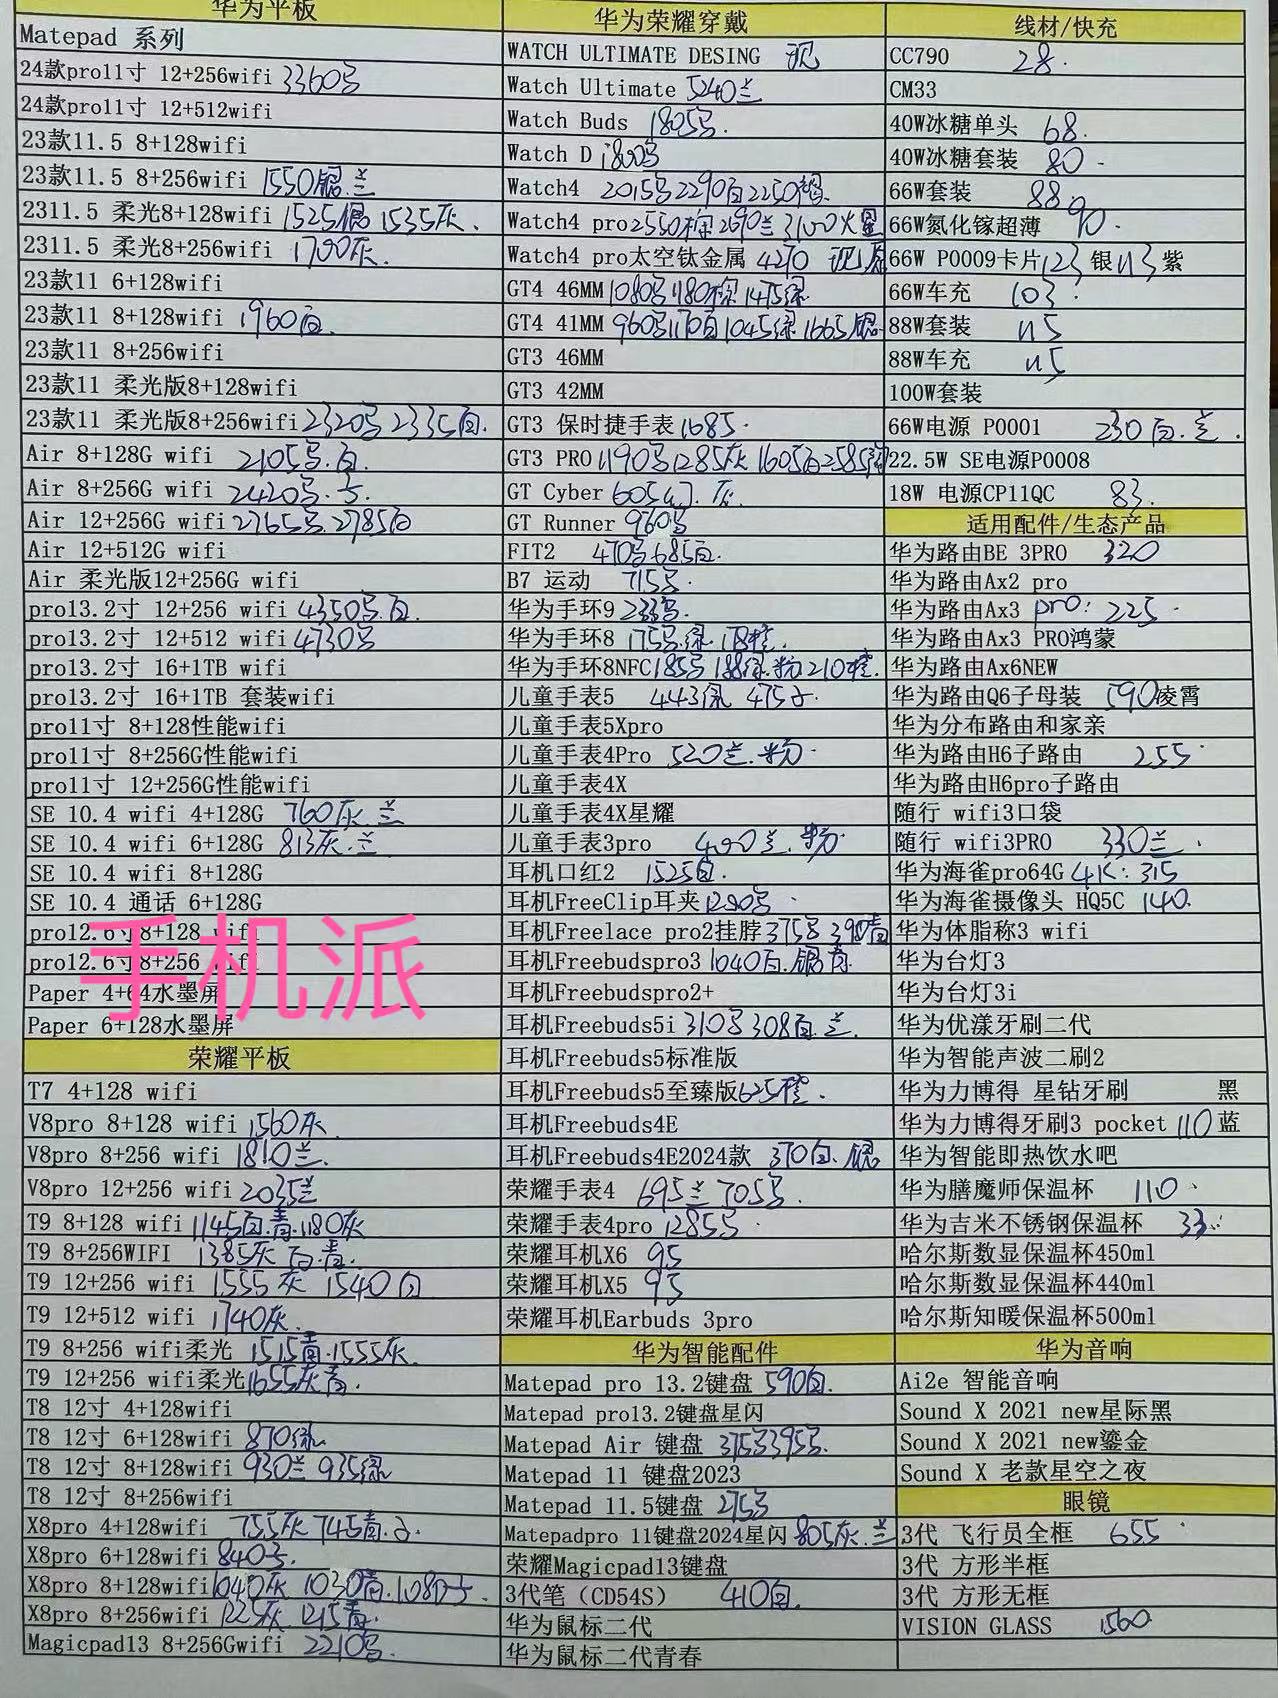 华为平板
Matepad 系列
24款pro11寸 12+256wifi 3360
24款pro11寸 12+512wifi
23款11.5 8+128wifi
23款11.5 8+256wifi 1550银.兰
2311.5 柔光8+128wifi 1525银 1535灰.
2311.5 柔光8+256wifi 1700灰.
23款11 6+128wifi
23款11 8+128wifi 1960白.
23款11 8+256wifi
23款11 柔光版8+128wifi
23款11 柔光版8+256wifi 2320 2335白.
Air 8+128G wifi 2105 .白.
Air 8+256G wifi 2420
Air 12+256G wifi 2765 2785白
Air 12+512G wifi
Air 柔光版12+256G wifi
pro13.2寸 12+256 wifi 4350 .白
pro13.2寸 12+512 wifi 4730
pro13.2寸 16+1TB wifi
pro13.2寸 16+1TB 套装wifi
pro11寸 8+128性能wifi
pro11寸 8+256G性能wifi
pro11寸 12+256G性能wifi
SE 10.4 wifi 4+128G 760灰.兰
SE 10.4 wifi 6+128G 813灰.兰
SE 10.4 wifi 8+128G
SE 10.4 通话 6+128G
pro12.6寸8+128 wifi
pro12.6寸8+256 wifi
手机派
Paper 4+64水墨屏
Paper 6+128水墨屏
荣耀平板
T7 4+128 wifi
V8pro 8+128 wifi 1560灰
V8pro 8+256 wifi 1810兰.
V8pro 12+256 wifi 2035兰
T9 8+128 wifi 1145白.青.1180灰
T9 8+256WIFI 1385灰 白.青.
T9 12+256 wifi 1555灰 1540白
T9 12+512 wifi 1740灰.
T9 8+256 wifi柔光 1515青.1555灰.
T9 12+256 wifi柔光 1655灰青.
T8 12寸 4+128wifi
T8 12寸 6+128wifi 870绿
T8 12寸 8+128wifi 930兰 935绿
T8 12寸 8+256wifi
X8pro 4+128wifi 755灰 745青.
X8pro 6+128wifi 840
X8pro 8+128wifi 1040灰 1030青.1080
X8pro 8+256wifi 1225灰 1215青.
Magicpad13 8+256Gwifi 2210
华为荣耀穿戴
WATCH ULTIMATE DESING 现
Watch Ultimate 5240兰
Watch Buds 1805
Watch D 1800
Watch4 2015 2290白2250
Watch4 pro2550棕2690兰3100火星
Watch4 pro太空钛金属 4270 现
GT4 46MM 1080 1180棕1475绿
GT4 41MM 960 1170白1045绿1665银
GT3 46MM
GT3 42MM
GT3 保时捷手表1685.
GT3 PRO 1190 1285灰1605白2585
GT Cyber 605 灰
GT Runner 960
FIT2 470 685白.
B7 运动 715
华为手环9 233
华为手环8 175 .绿.178橙.
华为手环8NFC185 188绿.粉210橙.
儿童手表5 443 475
儿童手表5Xpro
儿童手表4Pro 520兰.粉
儿童手表4X
儿童手表4X星耀
儿童手表3pro 490兰.粉
耳机口红2 1525白.
耳机FreeClip耳夹1290
耳机Freelace pro2挂脖375 390青
耳机Freebudspro3 1040白.银青.
耳机Freebudspro2+
耳机Freebuds5i 310 308白.兰.
耳机Freebuds5标准版
耳机Freebuds5至臻版625橙.
耳机Freebuds4E
耳机Freebuds4E2024款 370白.银
荣耀手表4 695兰705
荣耀手表4pro 1285
荣耀耳机X6 95
荣耀耳机X5 95
荣耀耳机Earbuds 3pro
华为智能配件
Matepad pro 13.2键盘 590白.
Matepad pro13.2键盘星闪
Matepad Air 键盘 375 395
Matepad 11 键盘2023
Matepad 11.5键盘 275
Matepadpro 11键盘2024星闪 805灰.兰
荣耀Magicpad13键盘
3代笔（CD54S） 410白.
华为鼠标二代
华为鼠标二代青春
线材/快充
CC790 28.
CM33
40W冰糖单头 68.
40W冰糖套装 80.
66W套装 88
66W氮化镓超薄 90.
66W P0009卡片123银113紫
66W车充 103.
88W套装 115
88W车充 115
100W套装
66W电源 P0001 230白.兰.
22.5W SE电源P0008
18W 电源CP11QC 83.
适用配件/生态产品
华为路由BE 3PRO 320
华为路由Ax2 pro
华为路由Ax3 pro: 225
华为路由Ax3 PRO鸿蒙
华为路由Ax6NEW
华为路由Q6子母装 590凌霄
华为分布路由和家亲
华为路由H6子路由 255
华为路由H6pro子路由
随行 wifi3口袋
随行 wifi3PRO 330兰.
华为海雀pro64G 4K: 315
华为海雀摄像头 HQ5C 140.
华为体脂称3 wifi
华为台灯3
华为台灯3i
华为优漾牙刷二代
华为智能声波二刷2
华为力博得 星钻牙刷 黑
华为力博得牙刷3 pocket 110蓝
华为智能即热饮水吧
华为膳魔师保温杯 110
华为吉米不锈钢保温杯 33
哈尔斯数显保温杯450ml
哈尔斯数显保温杯440ml
哈尔斯知暖保温杯500ml
华为音响
Ai2e 智能音响
Sound X 2021 new星际黑
Sound X 2021 new鎏金
Sound X 老款星空之夜
眼镜
3代 飞行员全框 655
3代 方形半框
3代 方形无框
VISION GLASS 1560